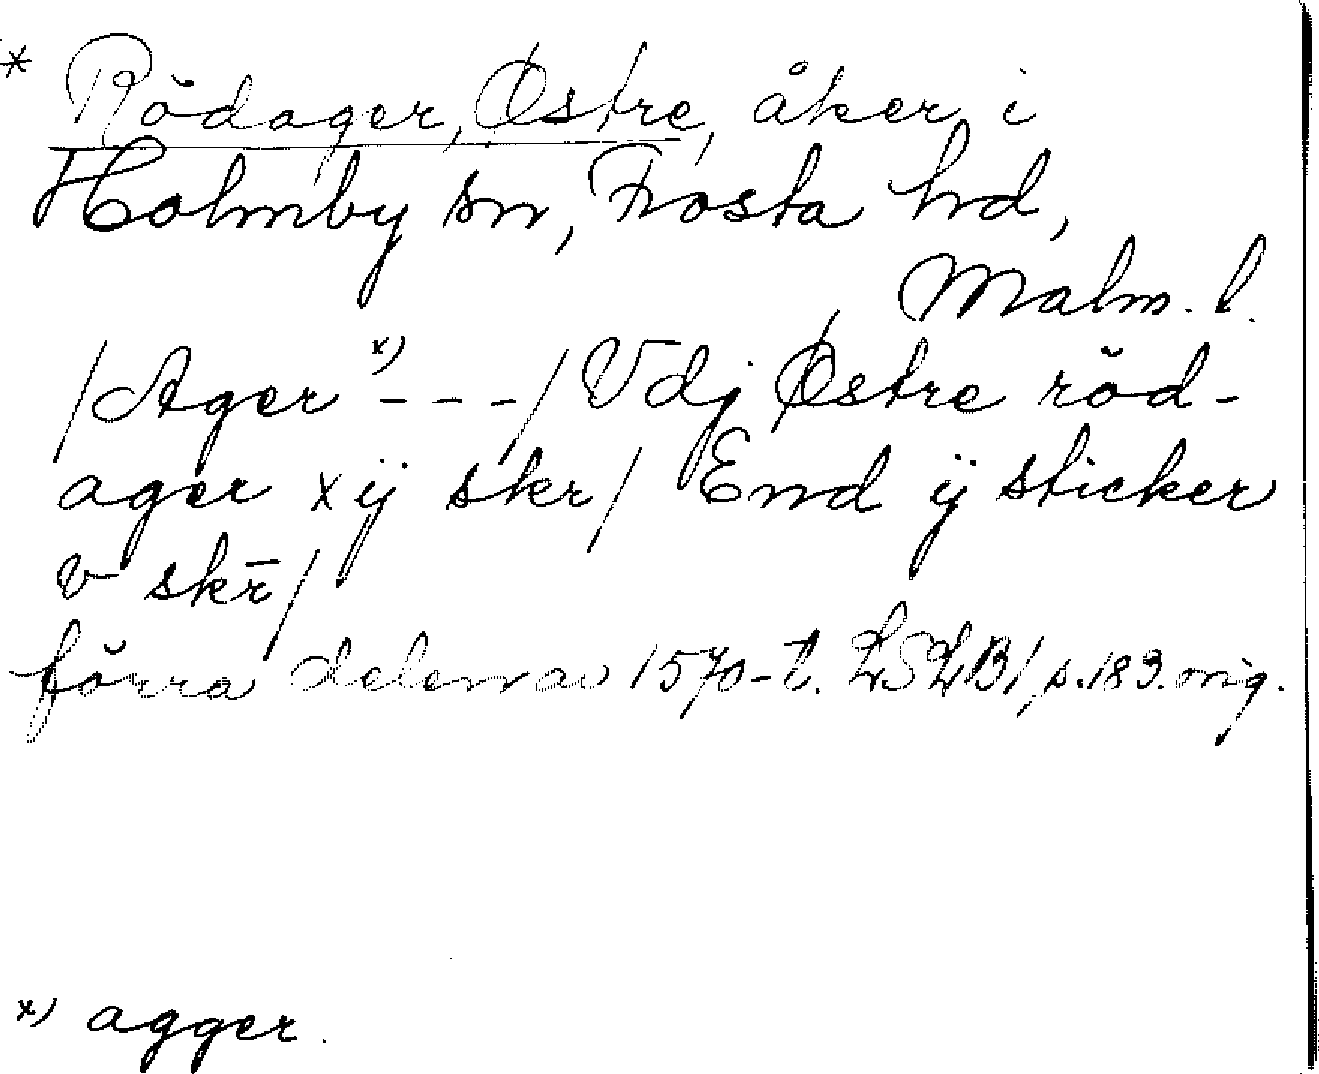 * Rödager, Østre, åker i
Holmby sn, Frosta hd,
Malm. l.
/Ager x) - - -/ Vdj Østre röd-
ager xij skr/ End ij sticker
v skr̄/
förra delen av 1570-t. LSLB1 p.183.orig.
x) agger.